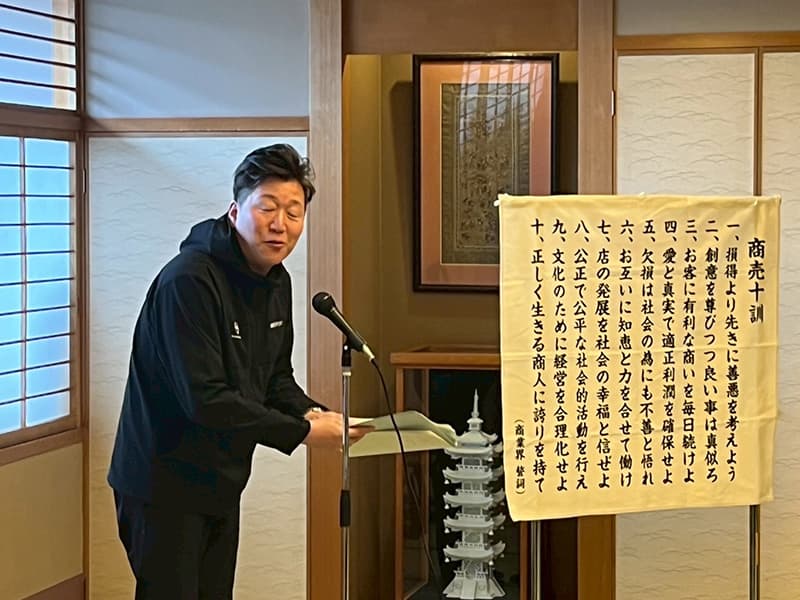 商売十訓
一、損得より先きに善悪を考えよう
二、創意を尊びつつ良い事は真似ろ
三、お客に有利な商いを毎日続けよ
四、愛と真実で適正利潤を確保せよ
五、欠損は社会の為にも不善と悟れ
六、お互いに知恵と力を合せて働け
七、店の発展を社会の幸福と信ぜよ
八、公正で公平な社会的活動を行え
九、文化のために経営を合理化せよ
十、正しく生きる商人に誇りを持て
（商業界 誓詞）